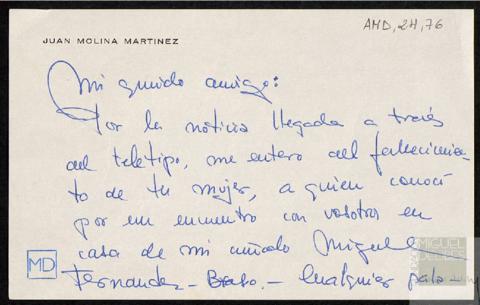 AMD, 24, 76
JUAN MOLINA MARTINEZ
Mi querido amigo:
Por la noticia llegada a través
del teletipo, me entero del fallecimien-
to de tu mujer, a quien conocí
por un encuentro con vosotros en
casa de mi cuñado Miguel
Fernandez-Braso.- Cualquier
MD
MIGUEL
DELIBES